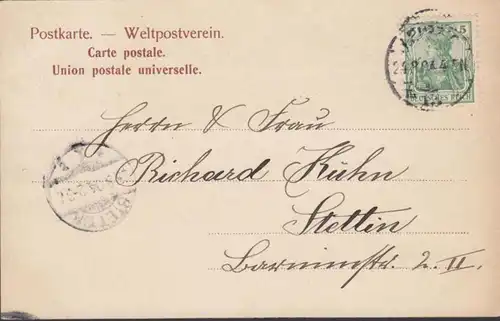 Postkarte. — Weltpostverein.
Carte postale.
Union postale universelle.
5
Herrn & Frau
Richard Kühn
Stettin
Barnimstr. 2. II.
STETTIN